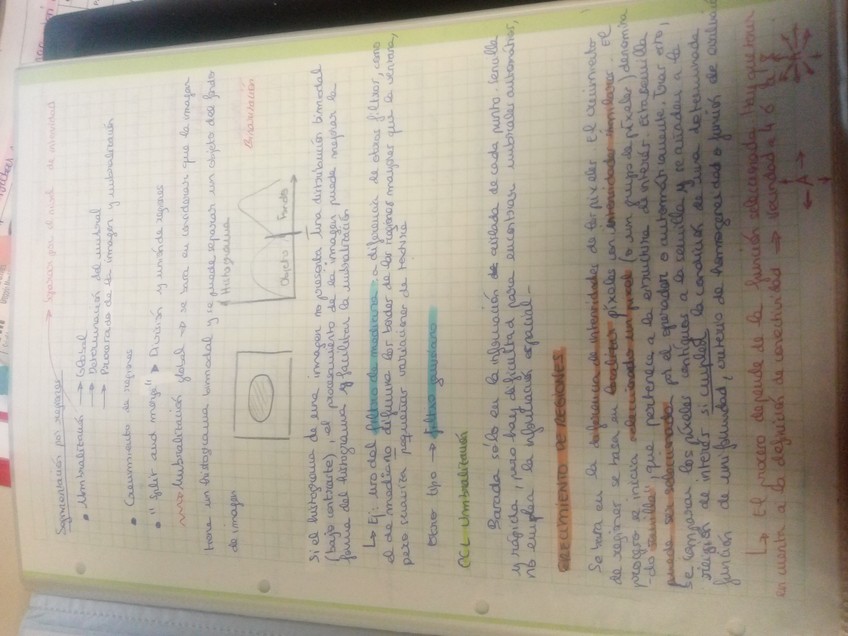 Segmentación por regiones → Separar por el nivel de intensidad
• Umbralización → Global
→ Determinación del umbral
→ Procesado de la imagen y umbralización
• Crecimiento en regiones
• "Split and merge" → División y unión de regiones
Umbralización global → se basa en considerar que la imagen
tiene un histograma bimodal y se puede separar un objeto del fondo
de imagen
Histograma
Binarización
Objeto
Fondo
Si el histograma de una imagen no presenta una distribución bimodal
(bajo contraste), el procesamiento de la imagen puede mejorar la
forma del histograma y facilitar la umbralización
↳ Ej: uso del filtro de mediana → a diferencia de otros filtros, como
el de mediano difumina los bordes de las regiones mayores que la ventana,
pero suaviza pequeñas variaciones de textura
Otro tipo → filtro gaussiano
Umbralización
Basada sólo en la información aislada de cada punto. Sencilla
y rápida, pero hay dificultad para encontrar umbrales automáticos,
no emplea la información espacial.
CRECIMIENTO DE REGIONES
Se basa en la diferencia de intensidades de los píxeles. El crecimiento
de regiones se basa en localizar píxeles con intensidades similares. El
proceso se inicia seleccionando un píxel (o un grupo de píxeles) denomina
-do semilla, que pertenece a la estructura de interés. Esta semilla
puede ser seleccionada por el operador o automáticamente. Tras esto,
se comparan los píxeles contiguos a la semilla y se añaden a la
región de interés si cumplen la condición de una determinada
función de uniformidad, criterio de homogeneidad o función de evaluación
↳ El proceso depende de la función seleccionada. Hay que tener
en cuenta a la definición de conectividad → vecindad a 4 ó 8